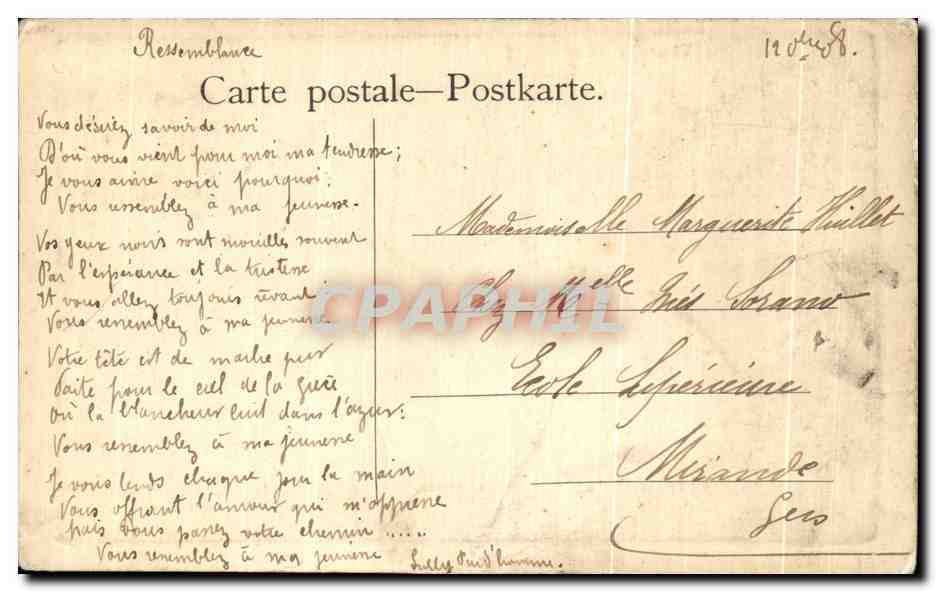 Ressemblance
12 Xbre 08.
Carte postale—Postkarte.
Vous désirez savoir de moi
D'où vous vient pour moi ma tendresse;
Je vous aime voici pourquoi:
Vous ressemblez à ma jeunesse.
Vos yeux noirs sont mouillés souvent
Par l'espérance et la tristesse
Et vous allez toujours rêvant:
Vous ressemblez à ma jeunesse
Votre tête est de marbre pur
Faite pour le ciel de la Grèce
Où la blancheur luit dans l'azur:
Vous ressemblez à ma jeunesse
Je vous tends chaque jour la main
Vous offrant l'amour qui m'oppresse
Mais vous passez votre chemin .....
Vous ressemblez à ma jeunesse
Sully Prud'homme.
Mademoiselle Marguerite Huillet
Chez Melle Inès Sorano
Ecole Supérieure
Mirande
Gers
CPAPHIL